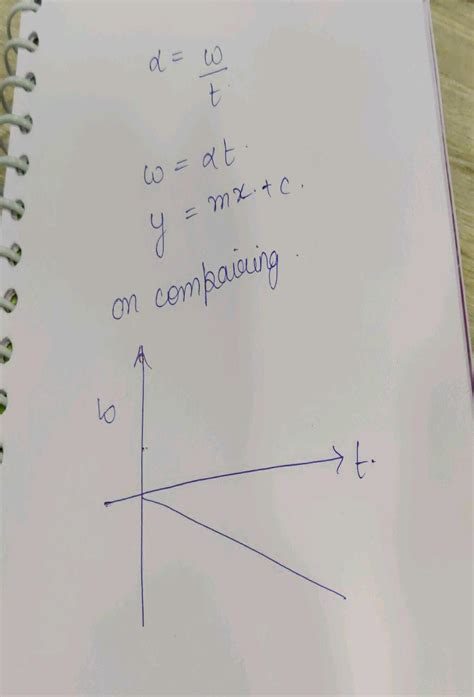 α = ω/t
ω = αt.
y = mx + c.
on compairing.
ω
t.